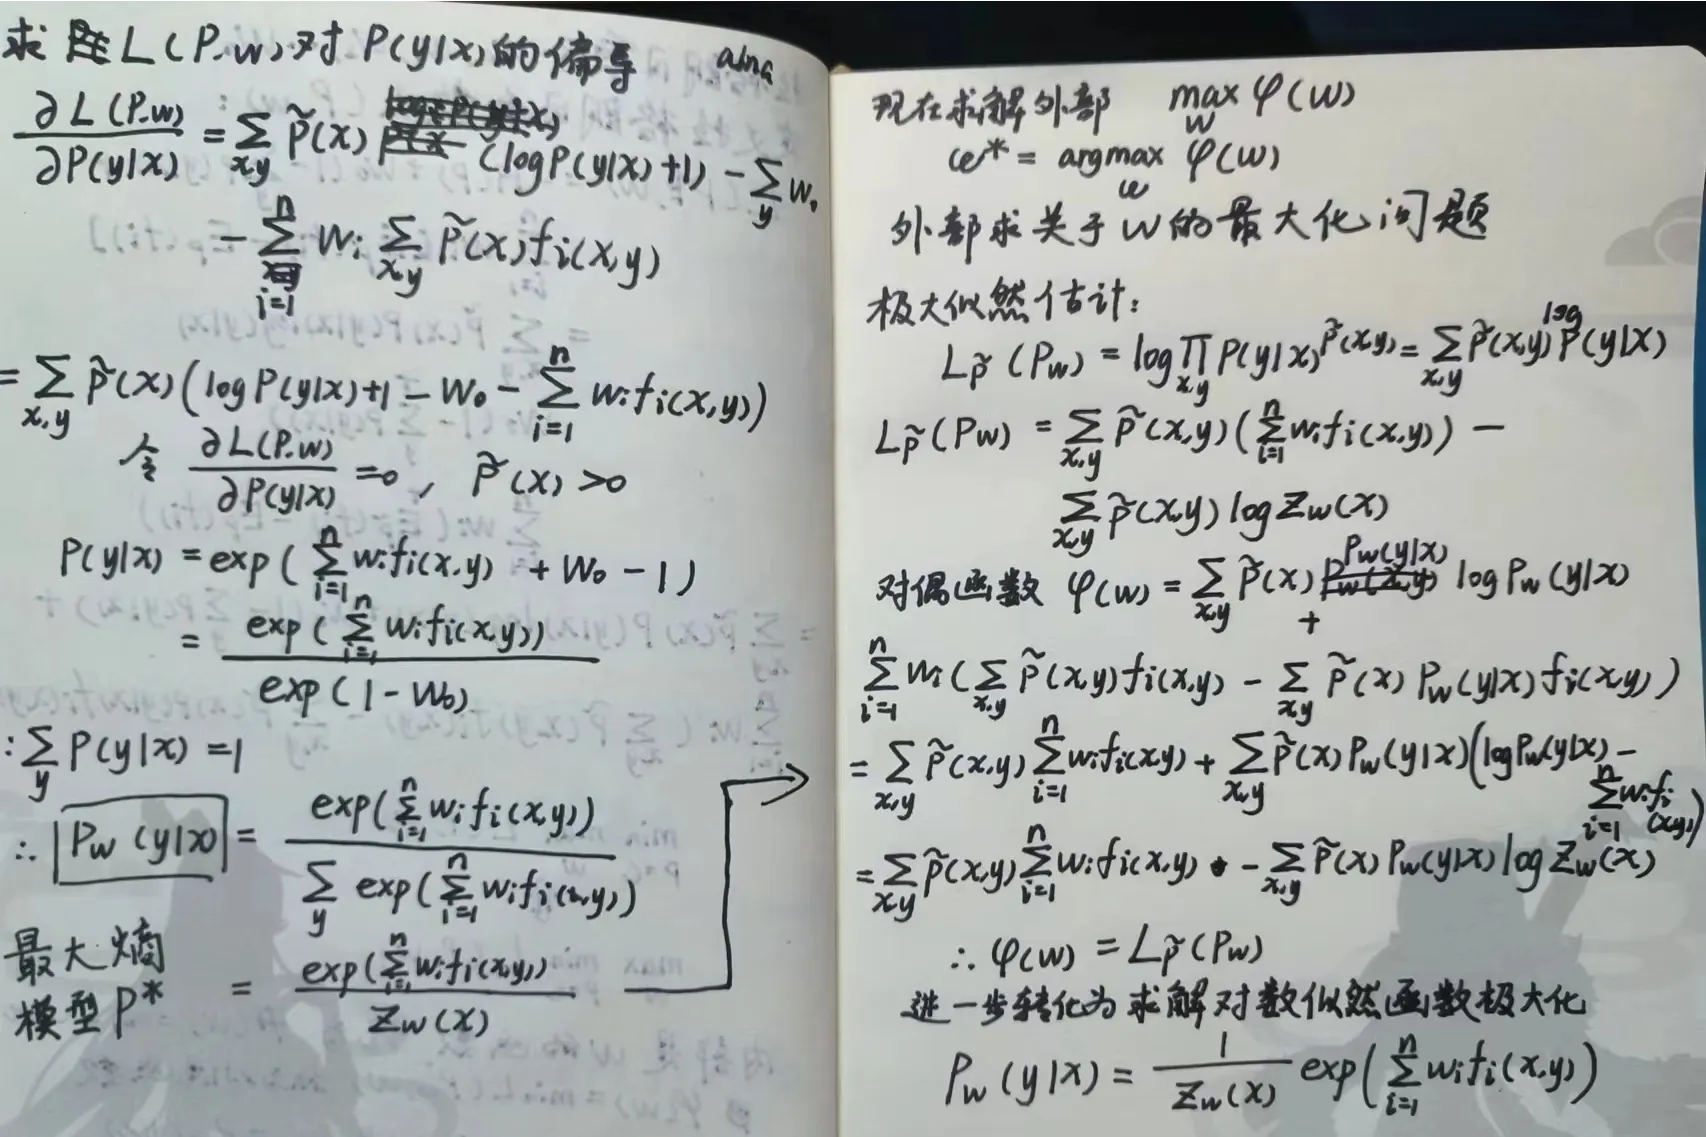 求 L(P,w)对P(y|x)的偏导
∂L(P,w)/∂P(y|x) = Σ_{x,y} P̃(x) (logP(y|x)+1) - Σ_y w₀
- Σ_{i=1}^n wᵢ Σ_{x,y} P̃(x)fᵢ(x,y)
= Σ_{x,y} P̃(x)(logP(y|x)+1-w₀-Σ_{i=1}^n wᵢfᵢ(x,y))
令 ∂L(P,w)/∂P(y|x) =0, P̃(x)>0
P(y|x) = exp(Σ_{i=1}^n wᵢfᵢ(x,y) + w₀ - 1)
= exp(Σ_{i=1}^n wᵢfᵢ(x,y)) / exp(1-w₀)
∵ Σ_y P(y|x) =1
∴ P_w(y|x) = exp(Σ_{i=1}^n wᵢfᵢ(x,y)) / Σ_y exp(Σ_{i=1}^n wᵢfᵢ(x,y))
最大熵
模型P* = exp(Σ_{i=1}^n wᵢfᵢ(x,y)) / Z_w(x)
现在求解外部 max_w φ(w)
w* = argmax_w φ(w)
外部求关于w的最大化问题
极大似然估计:
L_P̃(P_w) = log∏_{x,y} P(y|x)^{P̃(x,y)} = Σ_{x,y} P̃(x,y) log P(y|x)
L_P̃(P_w) = Σ_{x,y} P̃(x,y)(Σ_{i=1}^n wᵢfᵢ(x,y)) -
Σ_{x,y} P̃(x,y) logZ_w(x)
对偶函数 φ(w) = Σ_{x,y} P̃(x) P_w(y|x) logP_w(y|x)
+
Σ_{i=1}^n wᵢ(Σ_{x,y} P̃(x,y)fᵢ(x,y) - Σ_{x,y} P̃(x) P_w(y|x) fᵢ(x,y))
= Σ_{x,y} P̃(x,y) Σ_{i=1}^n wᵢfᵢ(x,y) + Σ_{x,y} P̃(x) P_w(y|x)(logP_w(y|x) -
Σ_{i=1}^n wᵢfᵢ(x,y))
= Σ_{x,y} P̃(x,y) Σ_{i=1}^n wᵢfᵢ(x,y) - Σ_{x,y} P̃(x) P_w(y|x) logZ_w(x)
∴ φ(w) = L_P̃(P_w)
进一步转化为求解对数似然函数极大化
P_w(y|x) = 1/Z_w(x) exp(Σ_{i=1}^n wᵢfᵢ(x,y))